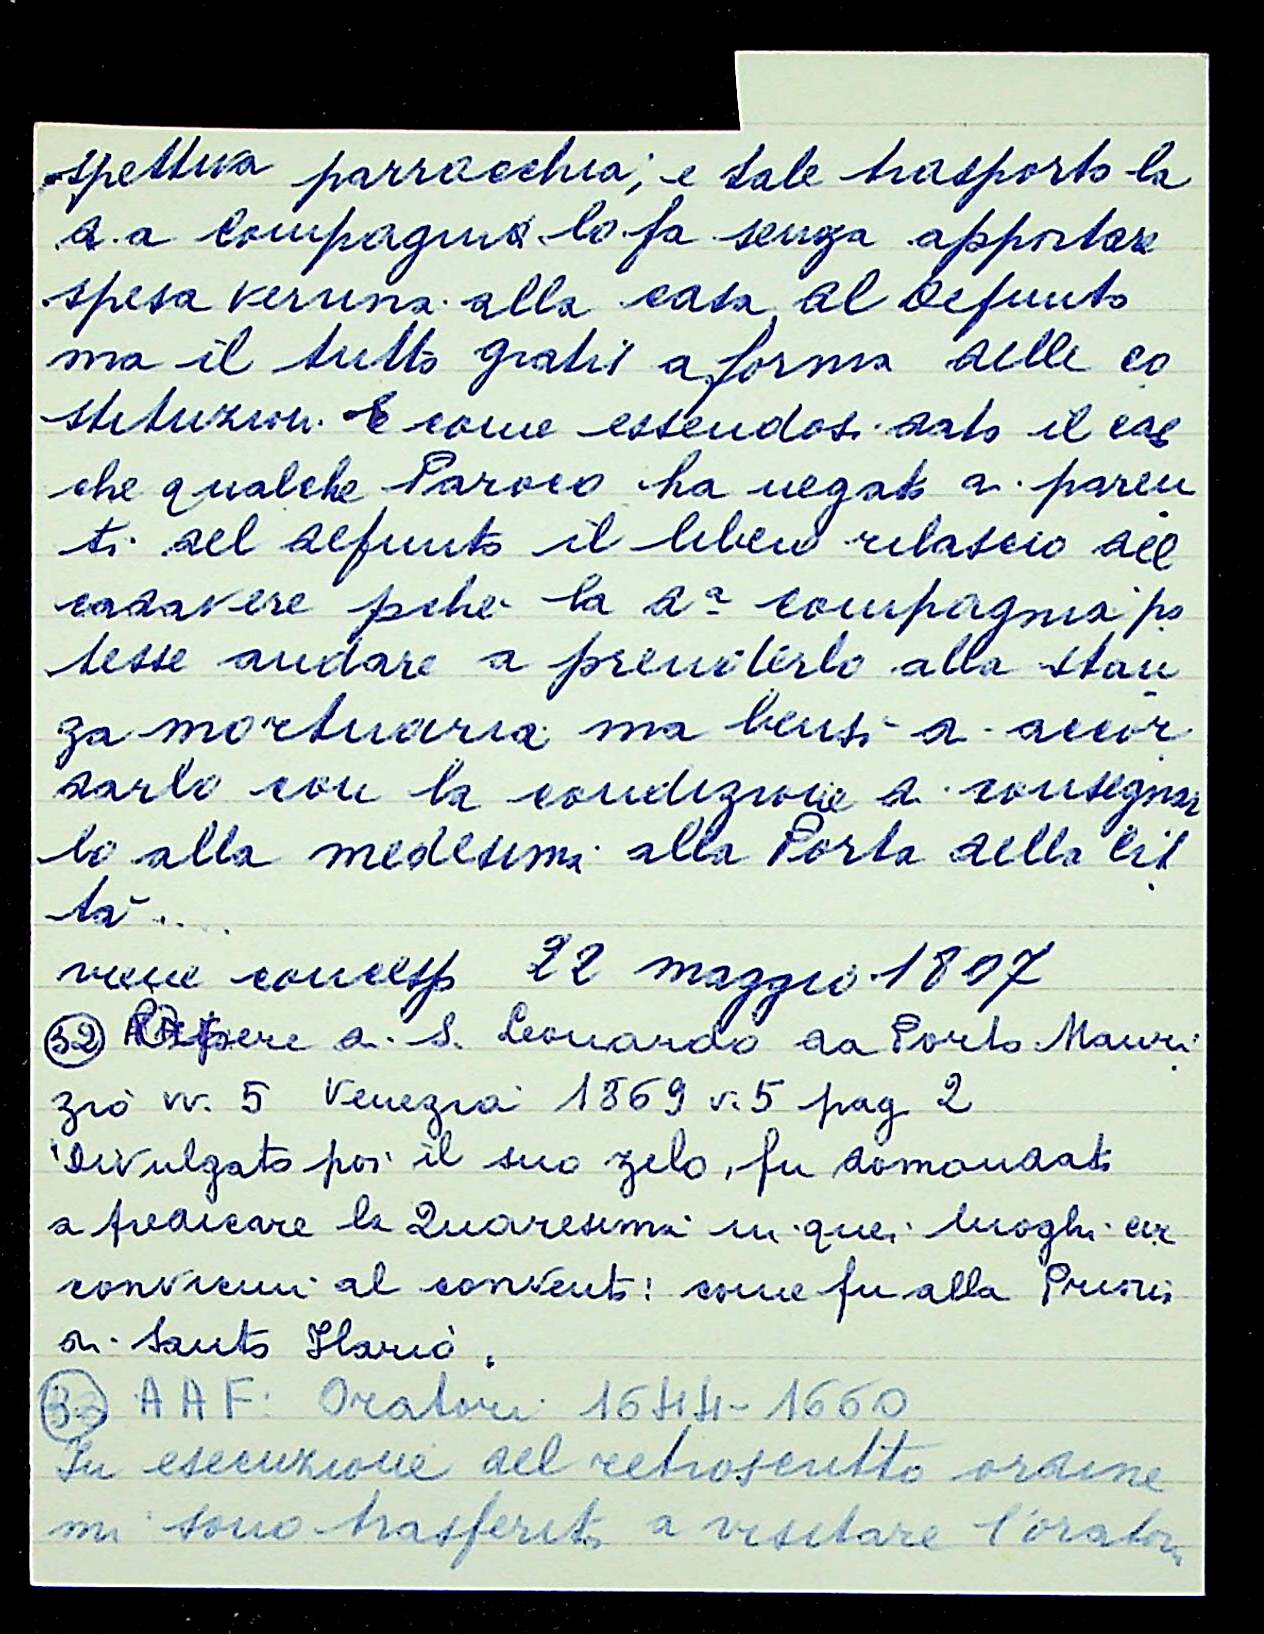 spettiva parrocchia; e tale trasporto la
d.a Compagnia lo fa senza apportare
spesa veruna alla casa del defunto
ma il tutto gratis a forma delle co
stituzioni. E come essendosi dato il caso
che qualche Paroco ha negato ai paren
ti del defunto il libero rilascio del
cadavere pchè la dª compagnia po
tesse andare a prenderlo alla stan
za mortuaria ma bensì di accor
darlo con la condizione di consegnar
lo alla medesima alla Porta della Cit
tà...
viene concesso 22 maggio 1807
32 Opere di S. Leonardo da Porto Mauri
zio vv. 5 Venezia 1869 v. 5 pag 2
Divulgato poi il suo zelo, fu domandato
a predicare la Quaresima in quei luoghi cir
convicini al convento: come fu alla Prioria
di Santo Ilario.
AAF: Oratori 1644-1660
In esecuzione del retroscritto ordine
mi sono trasferito a visitare l'oratori